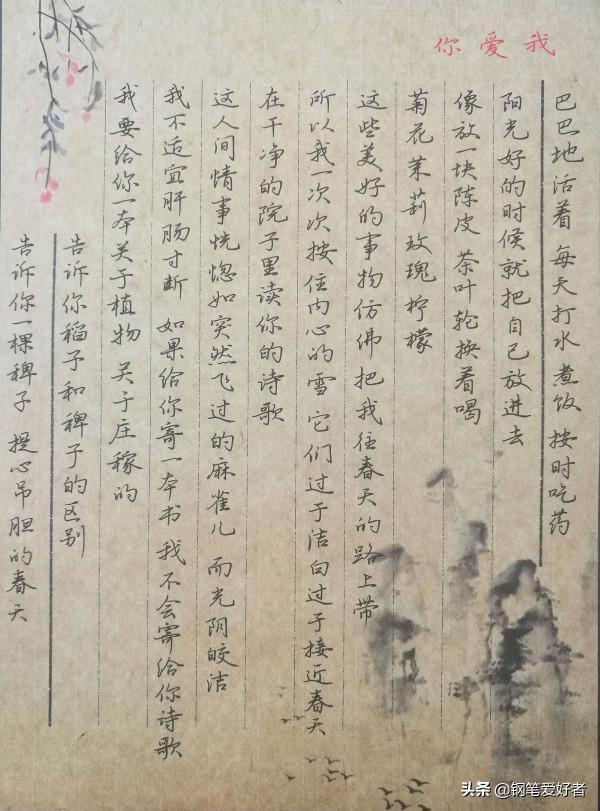 我爱你
巴巴地活着 每天打水 煮饭 按时吃药
阳光好的时候就把自己放进去
像放一块陈皮 茶叶轮换着喝
菊花 茉莉 玫瑰 柠檬
这些美好的事物仿佛把我往春天的路上带
所以我一次次按住内心的雪 它们过于洁白过于接近春天
在干净的院子里读你的诗歌
这人间情事恍惚如突然飞过的麻雀儿 而光阴皎洁
我不适宜肝肠寸断 如果给你寄一本书 我不会寄给你诗歌
我要给你一本关于植物 关于庄稼的
告诉你稻子和稗子的区别
告诉你一棵稗子 提心吊胆的春天
头条 @钢笔爱好者